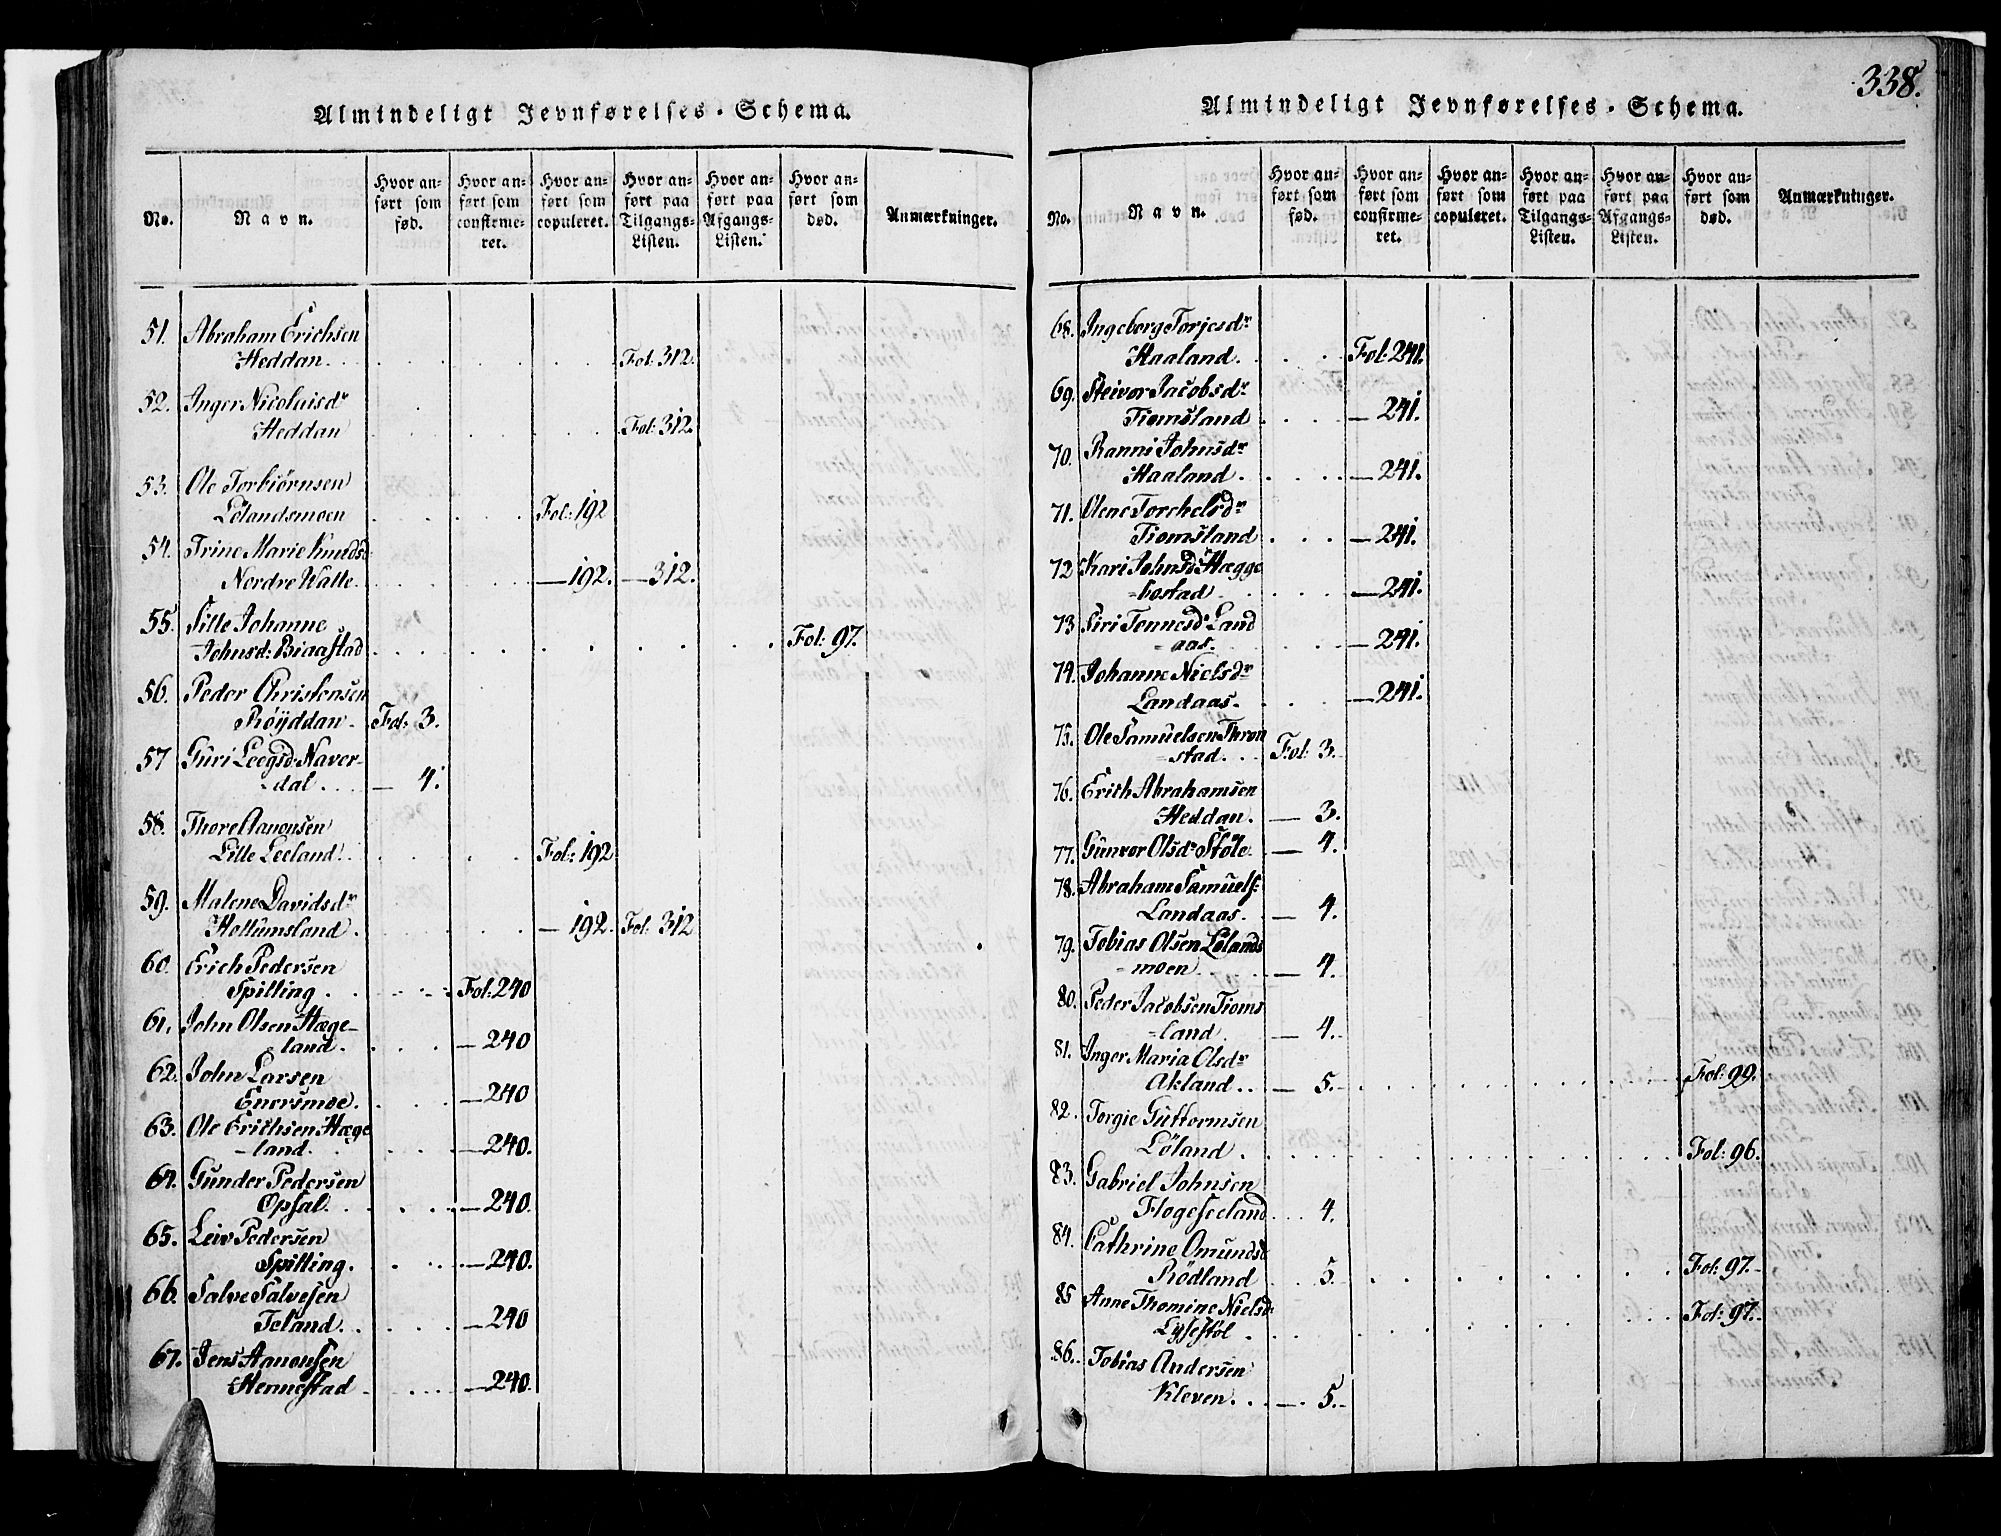 Almindeligt Jevnførelses-Schema.
No. Navn. Hvor anført som fød. Hvor anført som confirmeret. Hvor anført som copuleret. Hvor anført paa Tilgangs-Listen. Hvor anført paa Afgangs-Listen. Hvor anført som død. Anmærkninger.
51. Abraham Erichsen
Heddan. Fol: 312.
52. Inger Nicolaisdr
Heddan Fol: 312.
53. Ole Torbiörnsen
Lölandsmoen Fol: 192
54. Trine Marie Knudsd:
Nordre Watte. — 192. — 312.
55. Sille Johanne
Johnsd: Biaastad Fol: 97.
56. Peder Christensen
Röÿddan Fol: 3.
57 Guri Leegsd: Naver-
-dal. — 4.
58. Thore Aanonsen
Lille Leeland. Fol: 192
59. Malene Davidsdr
Hottumsland. — 192. Fol: 312
60. Erich Pedersen
Spilling. Fol: 240
61. John Olsen Hæge-
land. — 240
62. John Larsen
Enersmoe. — 240
63. Ole Erichsen Hæge
-land. — 240.
64. Gunder Pedersen
Opsal. — 240.
65. Leiv Pedersen
Spilling. — 240.
66. Salve Salvesen
Teland. — 240
67. Jens Aanonsen
Hennestad — 240.
338.
Almindeligt Jevnførelses-Schema.
No. Navn. Hvor anført som fød. Hvor anført som confirmeret. Hvor anført som copuleret. Hvor anført paa Tilgangs-Listen. Hvor anført paa Afgangs-Listen. Hvor anført som død. Anmærkninger.
68. Ingeborg Torjesdr
Haaland. Fol: 241.
69. Steivor Jacobsdr
Tiomsland — 241.
70. Ranni Johnsdr
Haaland — 241.
71. Olene Torchelsdr
Tiomsland — 241.
72 Kari Johnsdr Hægge
-bostad — 241.
73 Siri Tonnesdr Land
-aas. — 241.
74. Johanne Nielsdr
Landaas. — 241.
75. Ole Samuelsen Thron
-stad. Fol: 3.
76. Erich Abrahamsen
Heddan. — 3.
77. Gunvor Olsdr Støle — 4.
78. Abraham Samuels:
Landaas. — 4.
79. Tobias Olsen Lölands
-moen — 4.
80. Peder Jacobsen Tioms
-land. — 4.
81. Inger Maria Olsdr
Akland.. — 5. Fol: 99.
82. Torgie Guttormsen
Löland. Fol: 96.
83. Gabriel Johnsen
Flogeseeland 4.
84. Cathrine Omundsd
Rödland 5. Fol: 97.
85 Anne Thomine Nielsd:
Lyssestöl Fol: 97.
86. Tobias Andersen
Kleven. — 5.